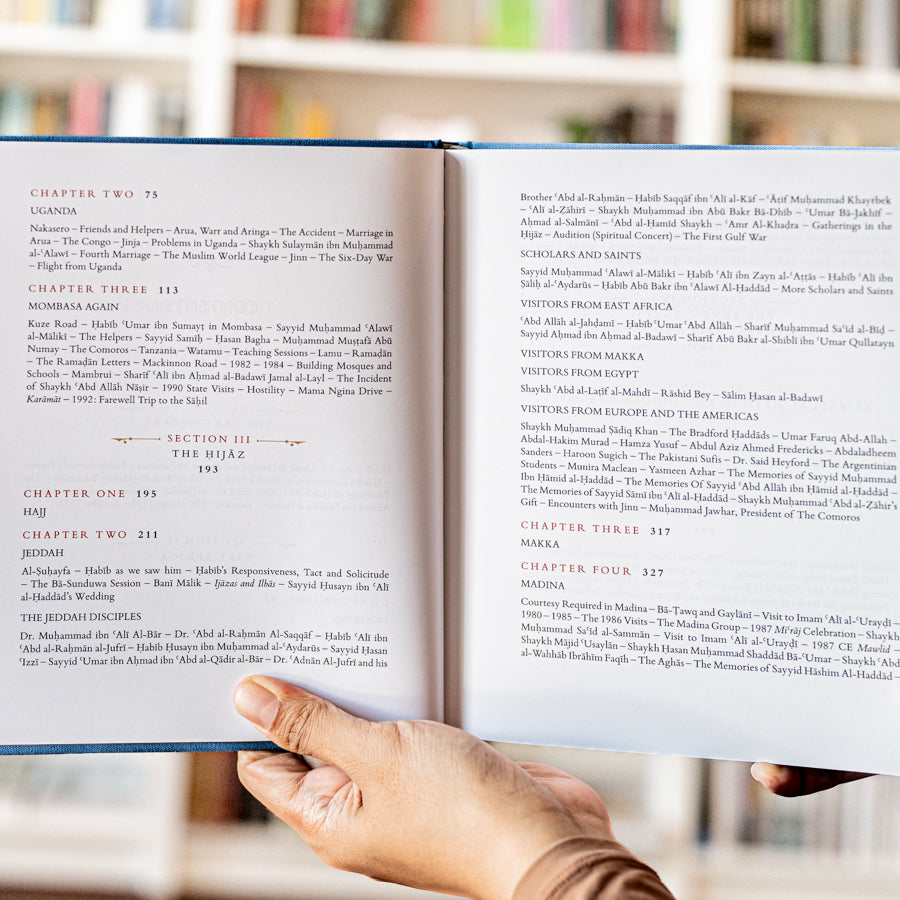 CHAPTER TWO 75
UGANDA
Nakasero – Friends and Helpers – Arua, Warr and Aringa – The Accident – Marriage in
Arua – The Congo – Jinja – Problems in Uganda – Shaykh Sulaymān ibn Muḥammad
al-ʿAlawī – Fourth Marriage – The Muslim World League – Jinn – The Six-Day War
– Flight from Uganda
CHAPTER THREE 113
MOMBASA AGAIN
Kuze Road – Ḥabīb ʿUmar ibn Sumayṭ in Mombasa – Sayyid Muḥammad ʿAlawī
al-Mālikī – The Helpers – Sayyid Samīḥ – Ḥasan Bagha – Muḥammad Muṣṭafā Abū
Numay – The Comoros – Tanzania – Watamu – Teaching Sessions – Lamu – Ramaḍān
– The Ramaḍān Letters – Mackinnon Road – 1982 – 1984 – Building Mosques and
Schools – Mambrui – Sharīf ʿAlī ibn Aḥmad al-Badawī Jamal al-Layl – The Incident
of Shaykh ʿAbd Allāh Nāṣir – 1990 State Visits – Hostility – Mama Ngina Drive –
Karāmāt – 1992: Farewell Trip to the Sāḥil
SECTION III
THE ḤIJĀZ
193
CHAPTER ONE 195
HAJJ
CHAPTER TWO 211
JEDDAH
Al-Ṣuḥayfa – Ḥabīb as we saw him – Ḥabīb's Responsiveness, Tact and Solicitude
– The Bā-Sunduwa Session – Banī Mālik – Ijāzas and Ilbās – Sayyid Ḥusayn ibn ʿAlī
al-Ḥaddād's Wedding
THE JEDDAH DISCIPLES
Dr. Muḥammad ibn ʿAlī Al-Bār – Dr. ʿAbd al-Raḥmān Al-Saqqāf – Ḥabīb ʿAlī ibn
ʿAbd al-Raḥmān al-Jufrī – Ḥabīb Ḥusayn ibn Muḥammad al-ʿAydarūs – Sayyid Ḥasan
ʿIzzī – Sayyid ʿUmar ibn Aḥmad ibn ʿAbd al-Qādir al-Bār – Dr. ʿAdnān Al-Jufrī and his
Brother ʿAbd al-Raḥmān – Ḥabīb Saqqāf ibn ʿAlī al-Kāf – ʿĀṭif Muḥammad Khayrbek
– ʿAlī al-Ẓāhirī – Shaykh Muḥammad ibn Abū Bakr Bā-Dhīb – ʿUmar Bā-Jakhīf –
Aḥmad al-Salmānī – ʿAbd al-Ḥamīd Shaykh – ʿAmr Al-Khaḍra – Gatherings in the
Ḥijāz – Audition (Spiritual Concert) – The First Gulf War
SCHOLARS AND SAINTS
Sayyid Muḥammad ʿAlawī al-Mālikī – Ḥabīb ʿAlī ibn Zayn al-ʿAṭṭās – Ḥabīb ʿAlī ibn
Ṣāliḥ al-ʿAydarūs – Ḥabīb Abū Bakr ibn ʿAlawī Al-Ḥaddād – More Scholars and Saints
VISITORS FROM EAST AFRICA
ʿAbd Allāh al-Jahḍamī – Ḥabīb ʿUmar ʿAbd Allāh – Sharīf Muḥammad Saʿīd al-Bīḍ –
Sayyid Aḥmad ibn Aḥmad al-Badawī – Sharīf Abū Bakr al-Shiblī ibn ʿUmar Qullatayn
VISITORS FROM MAKKA
VISITORS FROM EGYPT
Shaykh ʿAbd al-Laṭīf al-Mahdī – Rāshid Bey – Sālim Ḥasan al-Badawī
VISITORS FROM EUROPE AND THE AMERICAS
Shaykh Muḥammad Ṣādiq Khan – The Bradford Ḥaddāds – Umar Faruq Abd-Allah –
Abdal-Hakim Murad – Hamza Yusuf – Abdul Aziz Ahmed Fredericks – Abdaladheem
Sanders – Haroon Sugich – The Pakistani Sufis – Dr. Said Heyford – The Argentinian
Students – Munira Maclean – Yasmeen Azhar – The Memories of Sayyid Muḥammad
Ibn Ḥāmid al-Ḥaddād – The Memories Of Sayyid ʿAbd Allāh ibn Ḥāmid al-Ḥaddād –
The Memories of Sayyid Sāmī ibn ʿAlī al-Ḥaddād – Shaykh Muḥammad ʿAbd al-Ẓāhir's
Gift – Encounters with Jinn – Muḥammad Jawhar, President of The Comoros
CHAPTER THREE 317
MAKKA
CHAPTER FOUR 327
MADINA
Courtesy Required in Madina – Bā-Ṭawq and Gaylānī – Visit to Imam ʿAlī al-ʿUrayḍī –
1980 – 1985 – The 1986 Visits – The Madina Group – 1987 Miʿrāj Celebration – Shaykh
Muḥammad Saʿīd al-Sammān – Visit to Imam ʿAlī al-ʿUrayḍī – 1987 CE Mawlid –
Shaykh Mājid ʿUsaylān – Shaykh Ḥasan Muḥammad Shaddād Bā-ʿUmar – Shaykh ʿAbd
al-Wahhāb Ibrāhīm Faqīh – The Aghās – The Memories of Sayyid Hāshim Al-Ḥaddād –